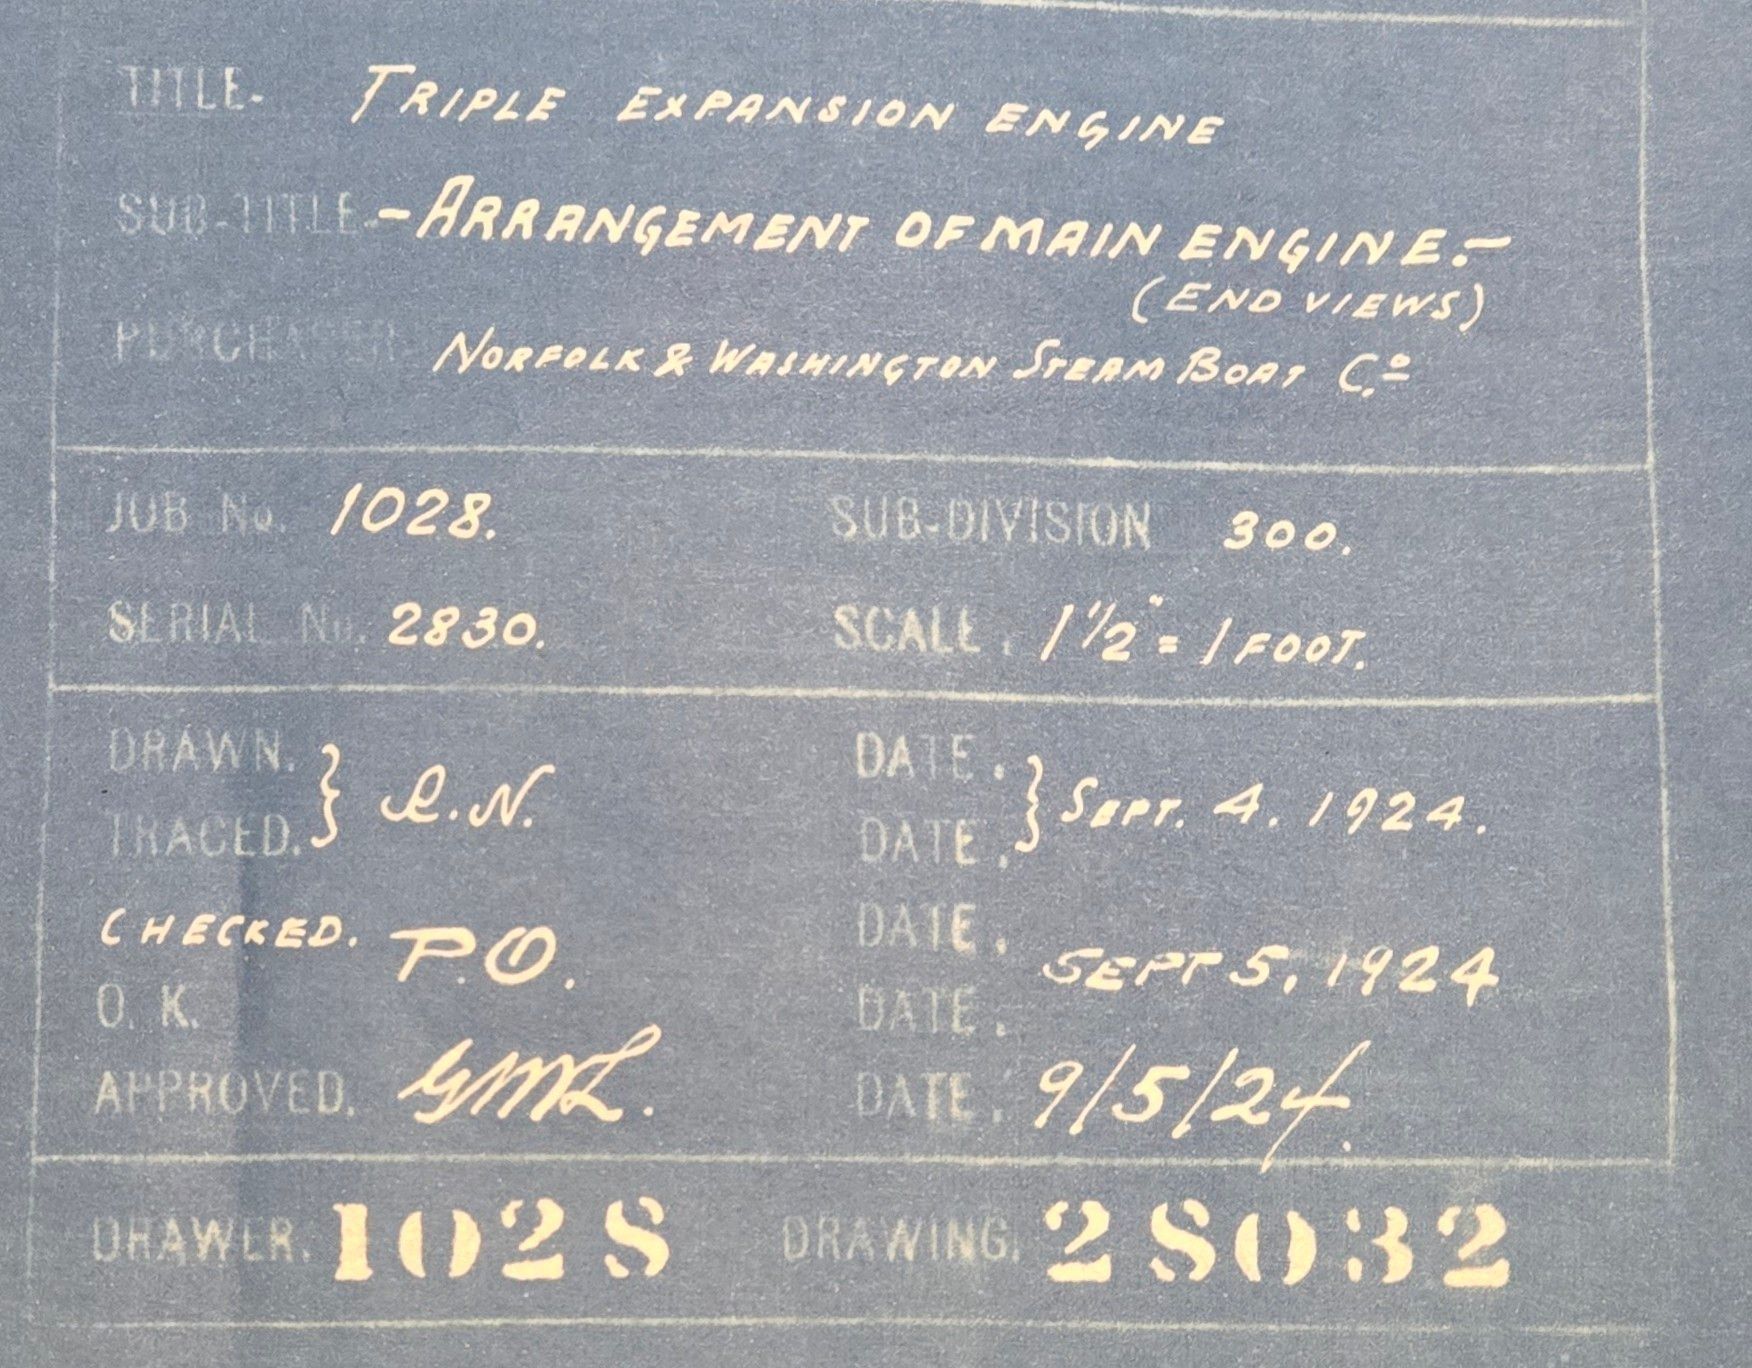 TITLE- TRIPLE EXPANSION ENGINE
SUB-TITLE- -ARRANGEMENT OF MAIN ENGINE.-
(END VIEWS)
PURCHASER- NORFOLK & WASHINGTON STEAM BOAT Cº
JOB No. 1028. SUB-DIVISION 300.
SERIAL No. 2830. SCALE. 1 1/2" = 1 FOOT.
DRAWN. DATE.
} R.N. } SEPT. 4. 1924.
TRACED. DATE.
CHECKED. P.O. DATE.
SEPT 5, 1924
O. K. DATE.
APPROVED. GML. DATE. 9/5/24.
DRAWER. 1028 DRAWING. 28032